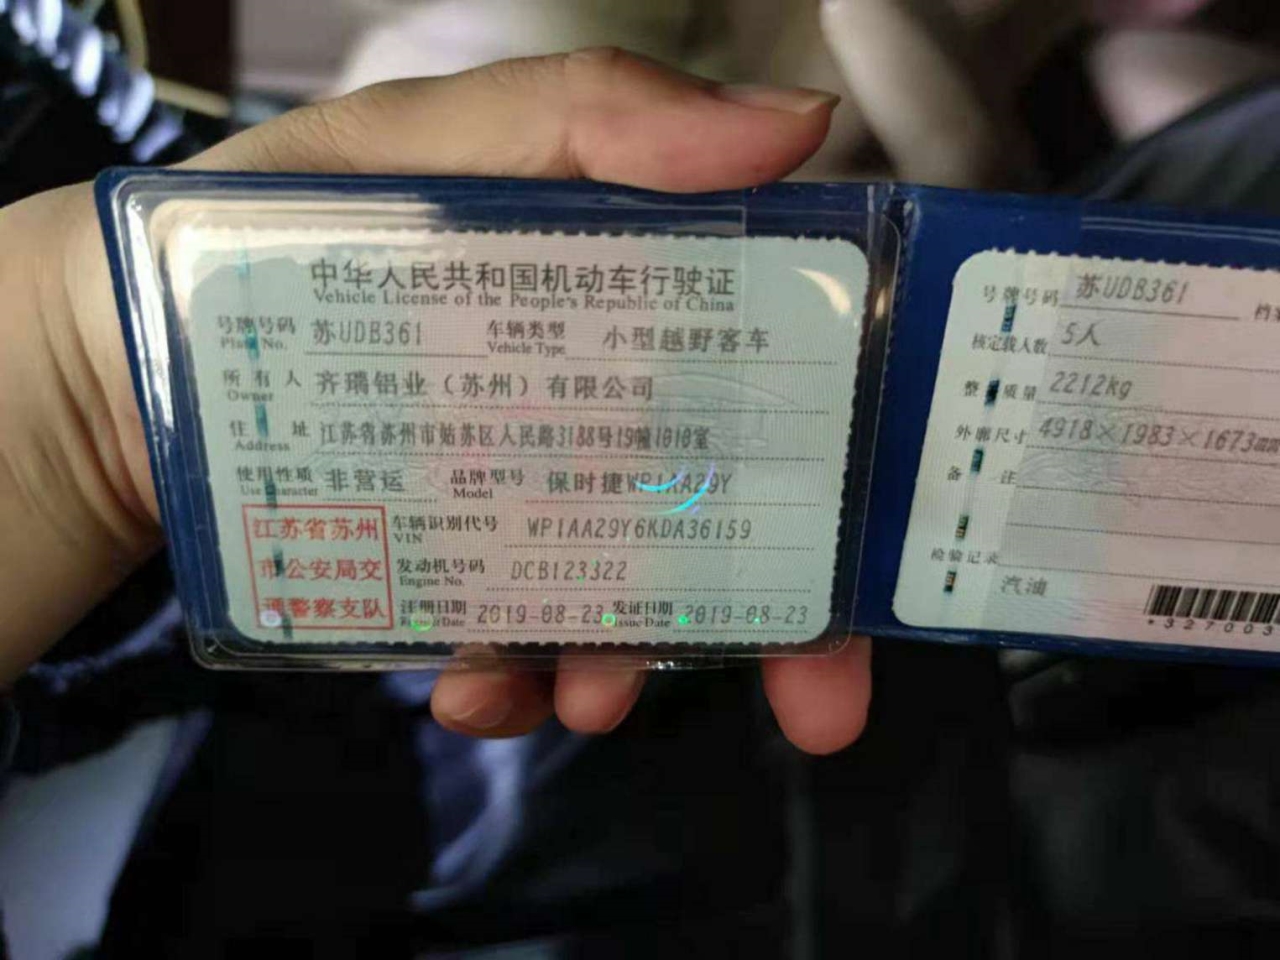 中华人民共和国机动车行驶证
Vehicle License of the People's Republic of China
号牌号码 苏UDB361 车辆类型 小型越野客车
Plate No. Vehicle Type
所有人 齐瑞铝业（苏州）有限公司
Owner
住址 江苏省苏州市姑苏区人民路3188号19幢1010室
Address
使用性质 非营运 品牌型号 保时捷WP1AA29Y
Use Character Model
江苏省苏州
市公安局交
通警察支队
车辆识别代号 WP1AA29Y6KDA36159
VIN
发动机号码 DCB123322
Engine No.
注册日期 2019-08-23 发证日期 2019-08-23
Register Date Issue Date
号牌号码 苏UDB361
核定载人数 5人
整备质量 2212kg
外廓尺寸 4918×1983×1673mm
备注
检验记录
汽油
*327003